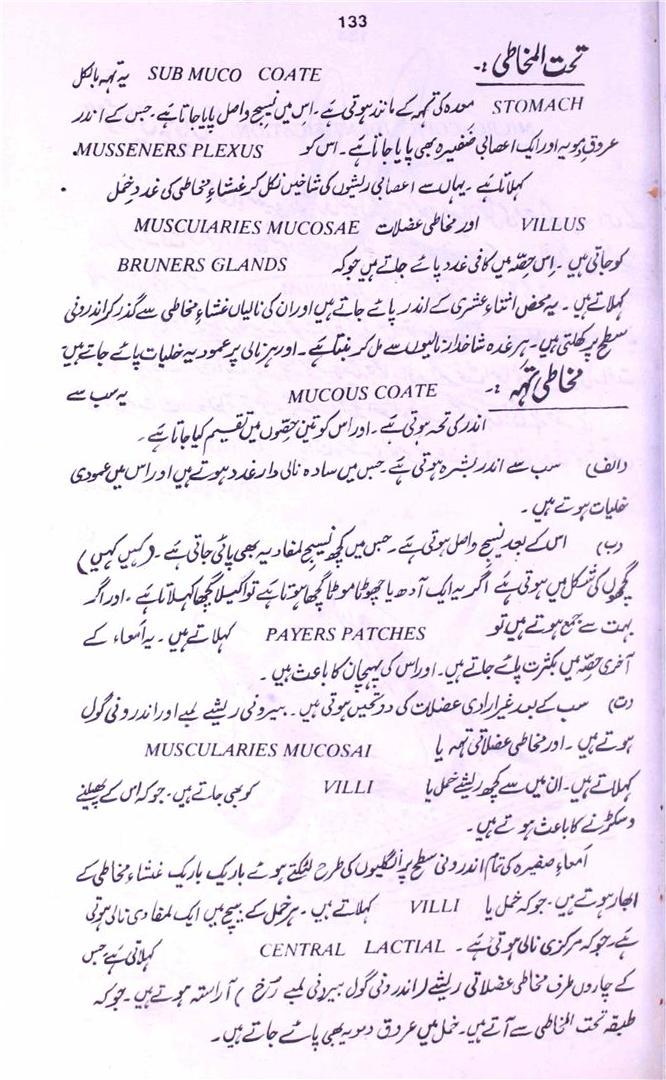 133
تحت المخاطی :۔ SUB MUCO COATE یہ تہہ بالکل
STOMACH معدہ کی تہہ کے مانند ہوتی ہے۔ اس میں نسیج واصل پایا جاتا ہے۔ جس کے اندر
عروق دمویہ اور ایک اعصابی ضفیرہ بھی پایا جاتا ہے۔ اس کو MUSSENERS PLEXUS.
کہلاتا ہے۔ یہاں سے اعصابی ریشوں کی شاخیں نکل کر غشاء مخاطی کی غدد و خمل
VILLUS اور مخاطی عضلات MUSCULARIES MUCOSAE
کو جاتی ہیں۔ اس حصّہ میں کافی غدد پائے جاتے ہیں جو کہ BRUNERS GLANDS
کہلاتے ہیں۔ یہ محض اثناء عشری کے اندر پائے جاتے ہیں اور ان کی نالیاں غشاء مخاطی سے گذر کر اندرونی
سطح پر کھلتی ہیں۔ ہر غدہ شاخدار نالیوں سے مل کر بنتا ہے۔ اور ہر نالی پر عمودیہ خلیات پائے جاتے ہیں
مخاطی تہہ :۔ MUCOUS COATE یہ سب سے
اندر کی تحہ ہوتی ہے۔ اور اس کو تین حصّوں میں تقسیم کیا جاتا ہے۔
(الف) سب سے اندر بشرہ ہوتی ہے۔ جس میں سادہ نالی دار غدد ہوتے ہیں اور اس میں عمودی
خلیات ہوتے ہیں۔
(ب) اس کے بعد نسیج واصل ہوتی ہے۔ جس میں کچھ نسیج لمفادیہ بھی پائی جاتی ہے۔ (کہیں کہیں)
گچھوں کی شکل میں ہوتی ہے اگر یہ ایک آدھ یا چھوٹا موٹا گچھا ہوتا ہے تو اکیلا گچھا کہلاتا ہے۔ اور اگر
بہت سے جمع ہوتے ہیں تو PAYERS PATCHES کہلاتے ہیں۔ یہ امعاء کے
آخری حصّہ میں بکثرت پائے جاتے ہیں۔ اور اس کی پہچان کا باعث ہیں۔
(ت) سب کے بعد غیر ارادی عضلات کی دو تحیں ہوتی ہیں۔ بیرونی ریشے لمبے اور اندرونی گول
ہوتے ہیں۔ اور مخاطی عضلاتی تہہ یا MUSCULARIES MUCOSAI
کہلاتے ہیں۔ ان میں سے کچھ ریشے خمل یا VILLI کو بھی جاتے ہیں۔ جو کہ اس کے پھیلنے
و سکڑنے کا باعث ہوتے ہیں۔
امعاء صغیرہ کی تمام اندرونی سطح پر انگلیوں کی طرح لٹکتے ہوئے باریک باریک غشاء مخاطی کے
ابھار ہوتے ہیں۔ جو کہ خمل یا VILLI کہلاتے ہیں۔ ہر خمل کے بیچ میں ایک لمفادی نالی ہوتی
ہے، جو کہ مرکزی نالی ہوتی ہے۔ CENTRAL LACTIAL کہلاتی ہے جس
کے چاروں طرف مخاطی عضلاتی ریشے (اندرونی گول بیرونی لمبے رخ) آراستہ ہوتے ہیں۔ جو کہ
طبقہ تحت المخاطی سے آتے ہیں۔ خمل میں عروق دمویہ بھی پائے جاتے ہیں۔